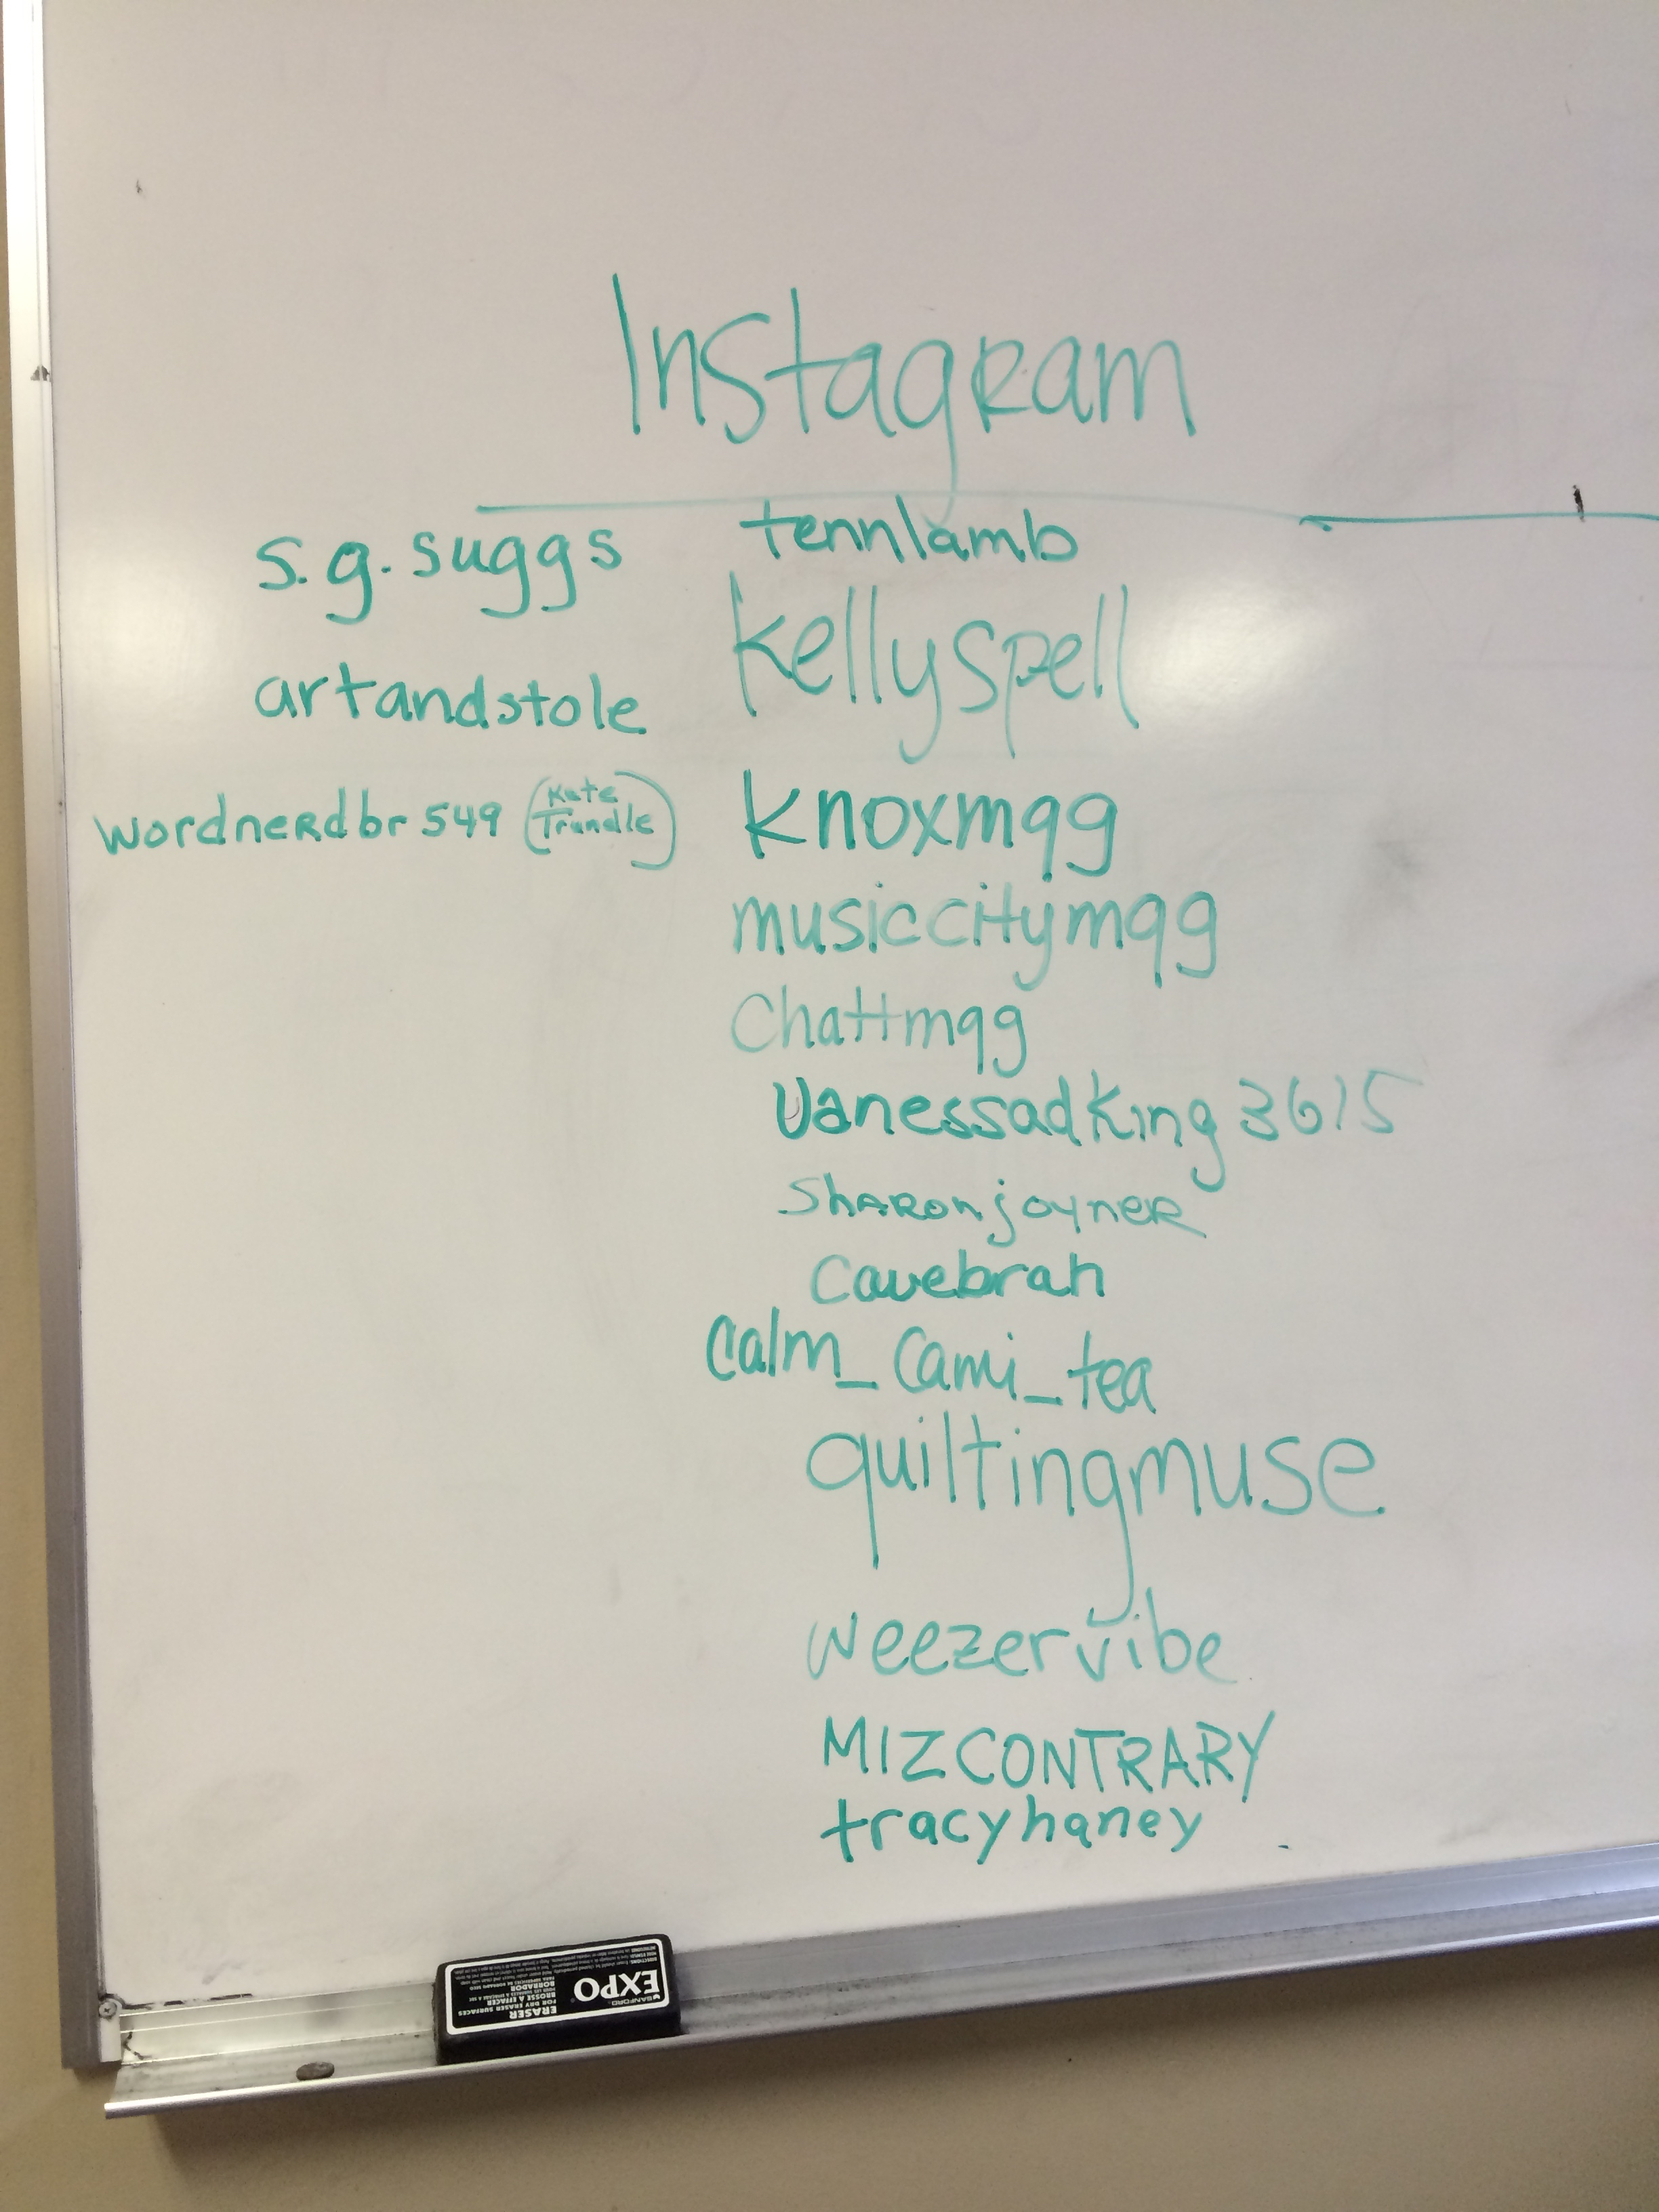 Instagram
s.g.suggs
artandstole
wordneRdbr549 (Kate Trundle)
tennlamb
kellyspell
knoxmqg
musiccitymqg
Chattmqg
Vanessadking3615
ShARonjoyneR
Cavebrah
Calm_Cami_tea
quiltingmuse
weezervibe
MIZCONTRARY
tracyhaney
SANFORD
EXPO
ERASER
FOR DRY ERASE SURFACES
BROSSE À EFFACER
BORRADOR